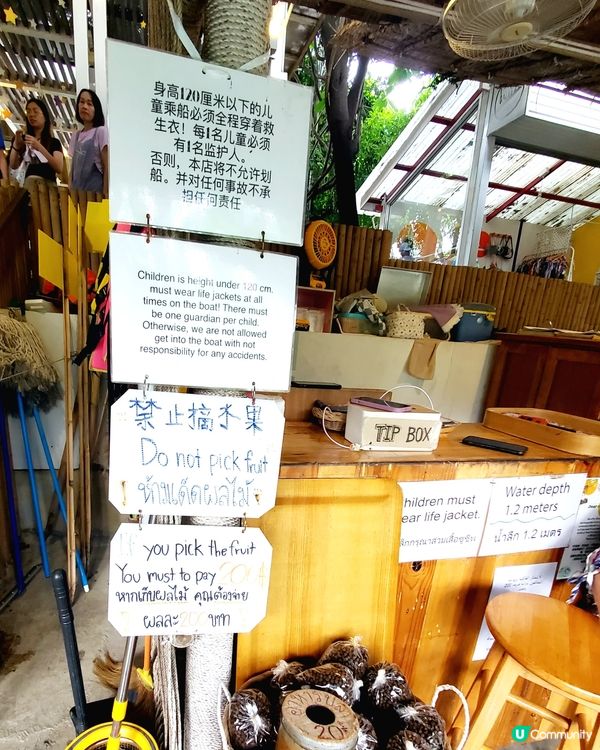 身高120厘米以下的儿
童乘船必须全程穿着救
生衣！每1名儿童必须
有1名监护人。
否则，本店将不允许划
船。并对任何事故不承
担任何责任
Children is height under 120 cm.
must wear life jackets at all
times on the boat! There must
be one guardian per child.
Otherwise, we are not allowed
get into the boat with not
responsibility for any accidents.
禁止摘水果
Do not pick fruit
ห้ามเด็ดผลไม้
If you pick the fruit
You must to pay 200฿
หากเก็บผลไม้ คุณต้องจ่าย
ผลละ 200 บาท
TIP BOX
hildren must
ear life jacket.
ด็กกรุณาสวมเสื้อชูชีพ
Water depth
1.2 meters
น้ำลึก 1.2 เมตร
20
U Community